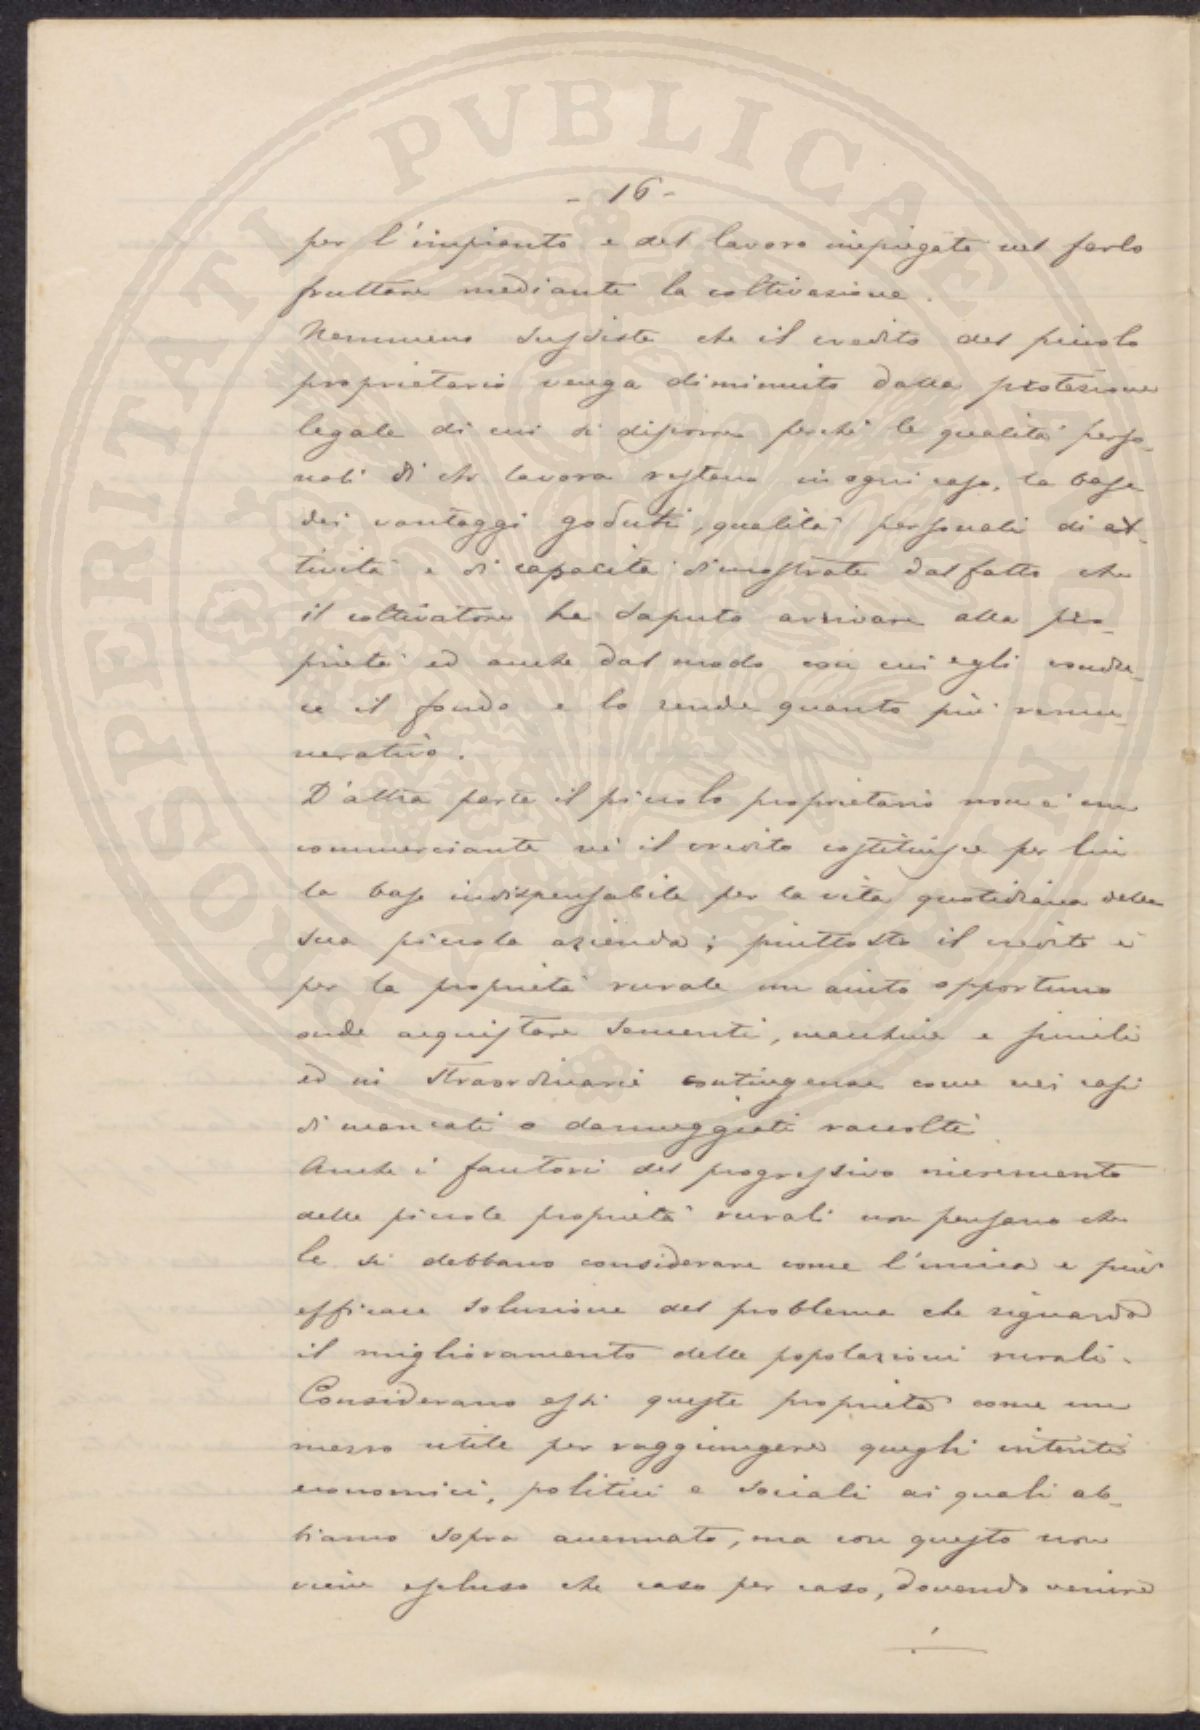 - 16 -
per l'impianto e del lavoro impiegato nel farlo
fruttare mediante la coltivazione.
Nemmeno sussiste che il credito del piccolo
proprietario venga diminuito dalla protezione
legale di cui si dispone perchè le qualità perso-
nali di chi lavora restano in ogni caso, la base
dei vantaggi goduti, qualità personali di at-
tività e di capacità dimostrate dal fatto che
il coltivatore ha saputo arrivare alla pro-
prietà ed anche dal modo con cui egli condu-
ce il fondo e lo rende quanto più remu-
nerativo.
D'altra parte il piccolo proprietario non è un
commerciante nè il credito costituisce per lui
la base indispensabile per la vita quotidiana della
sua piccola azienda; piuttosto il credito è
per la proprietà rurale un aiuto opportuno
onde acquistare sementi, macchine e simili
ed in straordinarie contingenze come nei casi
di mancati o danneggiati raccolti.
Anche i fautori del progressivo incremento
delle piccole proprietà rurali non pensano che
le si debbano considerare come l'unica e più
efficace soluzione del problema che riguarda
il miglioramento delle popolazioni rurali.
Considerano essi queste proprietà come un
mezzo utile per raggiungere quegli intenti
economici, politici e sociali ai quali ab-
biamo sopra accennato, ma con questo non
viene escluso che caso per caso, dovendo venire
PROSPERITATI PVBLICAE AVGENDAE